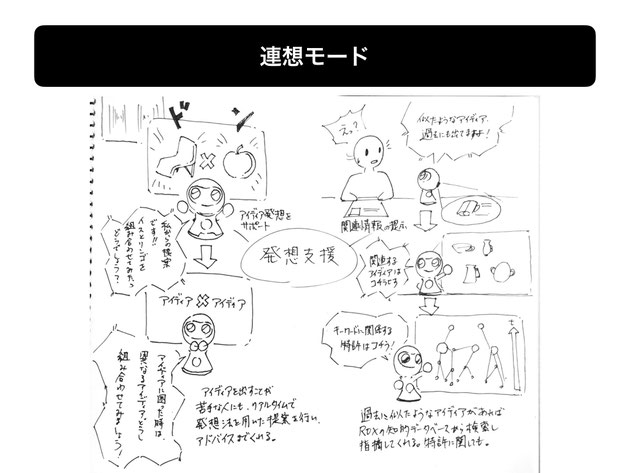 連想モード
ドン
私からの提案
です!!
イスとリンゴを
組み合わせてみたら
どうでしょう?
アイディア発想を
サポート
アイディア×アイディア
アイディアに困った時は、
異なるアイディアどうし
組み合わせてみましょう!
アイディアを出すことが
苦手な人にも、リアルタイムで
発想法を用いた提案を行い、
アドバイスまでくれる。
発想支援
えっ?
似たようなアイディア、
過去にも出てますよ!
関連情報の提示
関連する
アイディアは
コチラです
キーワードに関係する
特許はコチラ!
t
過去に似たようなアイディアがあれば
RDXの知的データベースから検索し
指摘してくれる。特許に関しても。